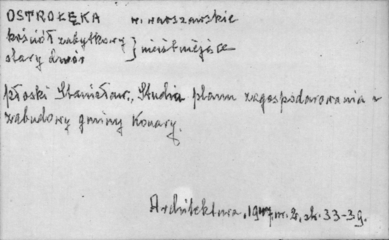 OSTROŁĘKA w. warszawskie
kościół zabytkowy } nieistniejące
stary dwór
Płoski Stanisław, Studia planu zagospodarowania i
zabudowy gminy Konary.
Architektura, 1947, nr. 2, st. 33-39.